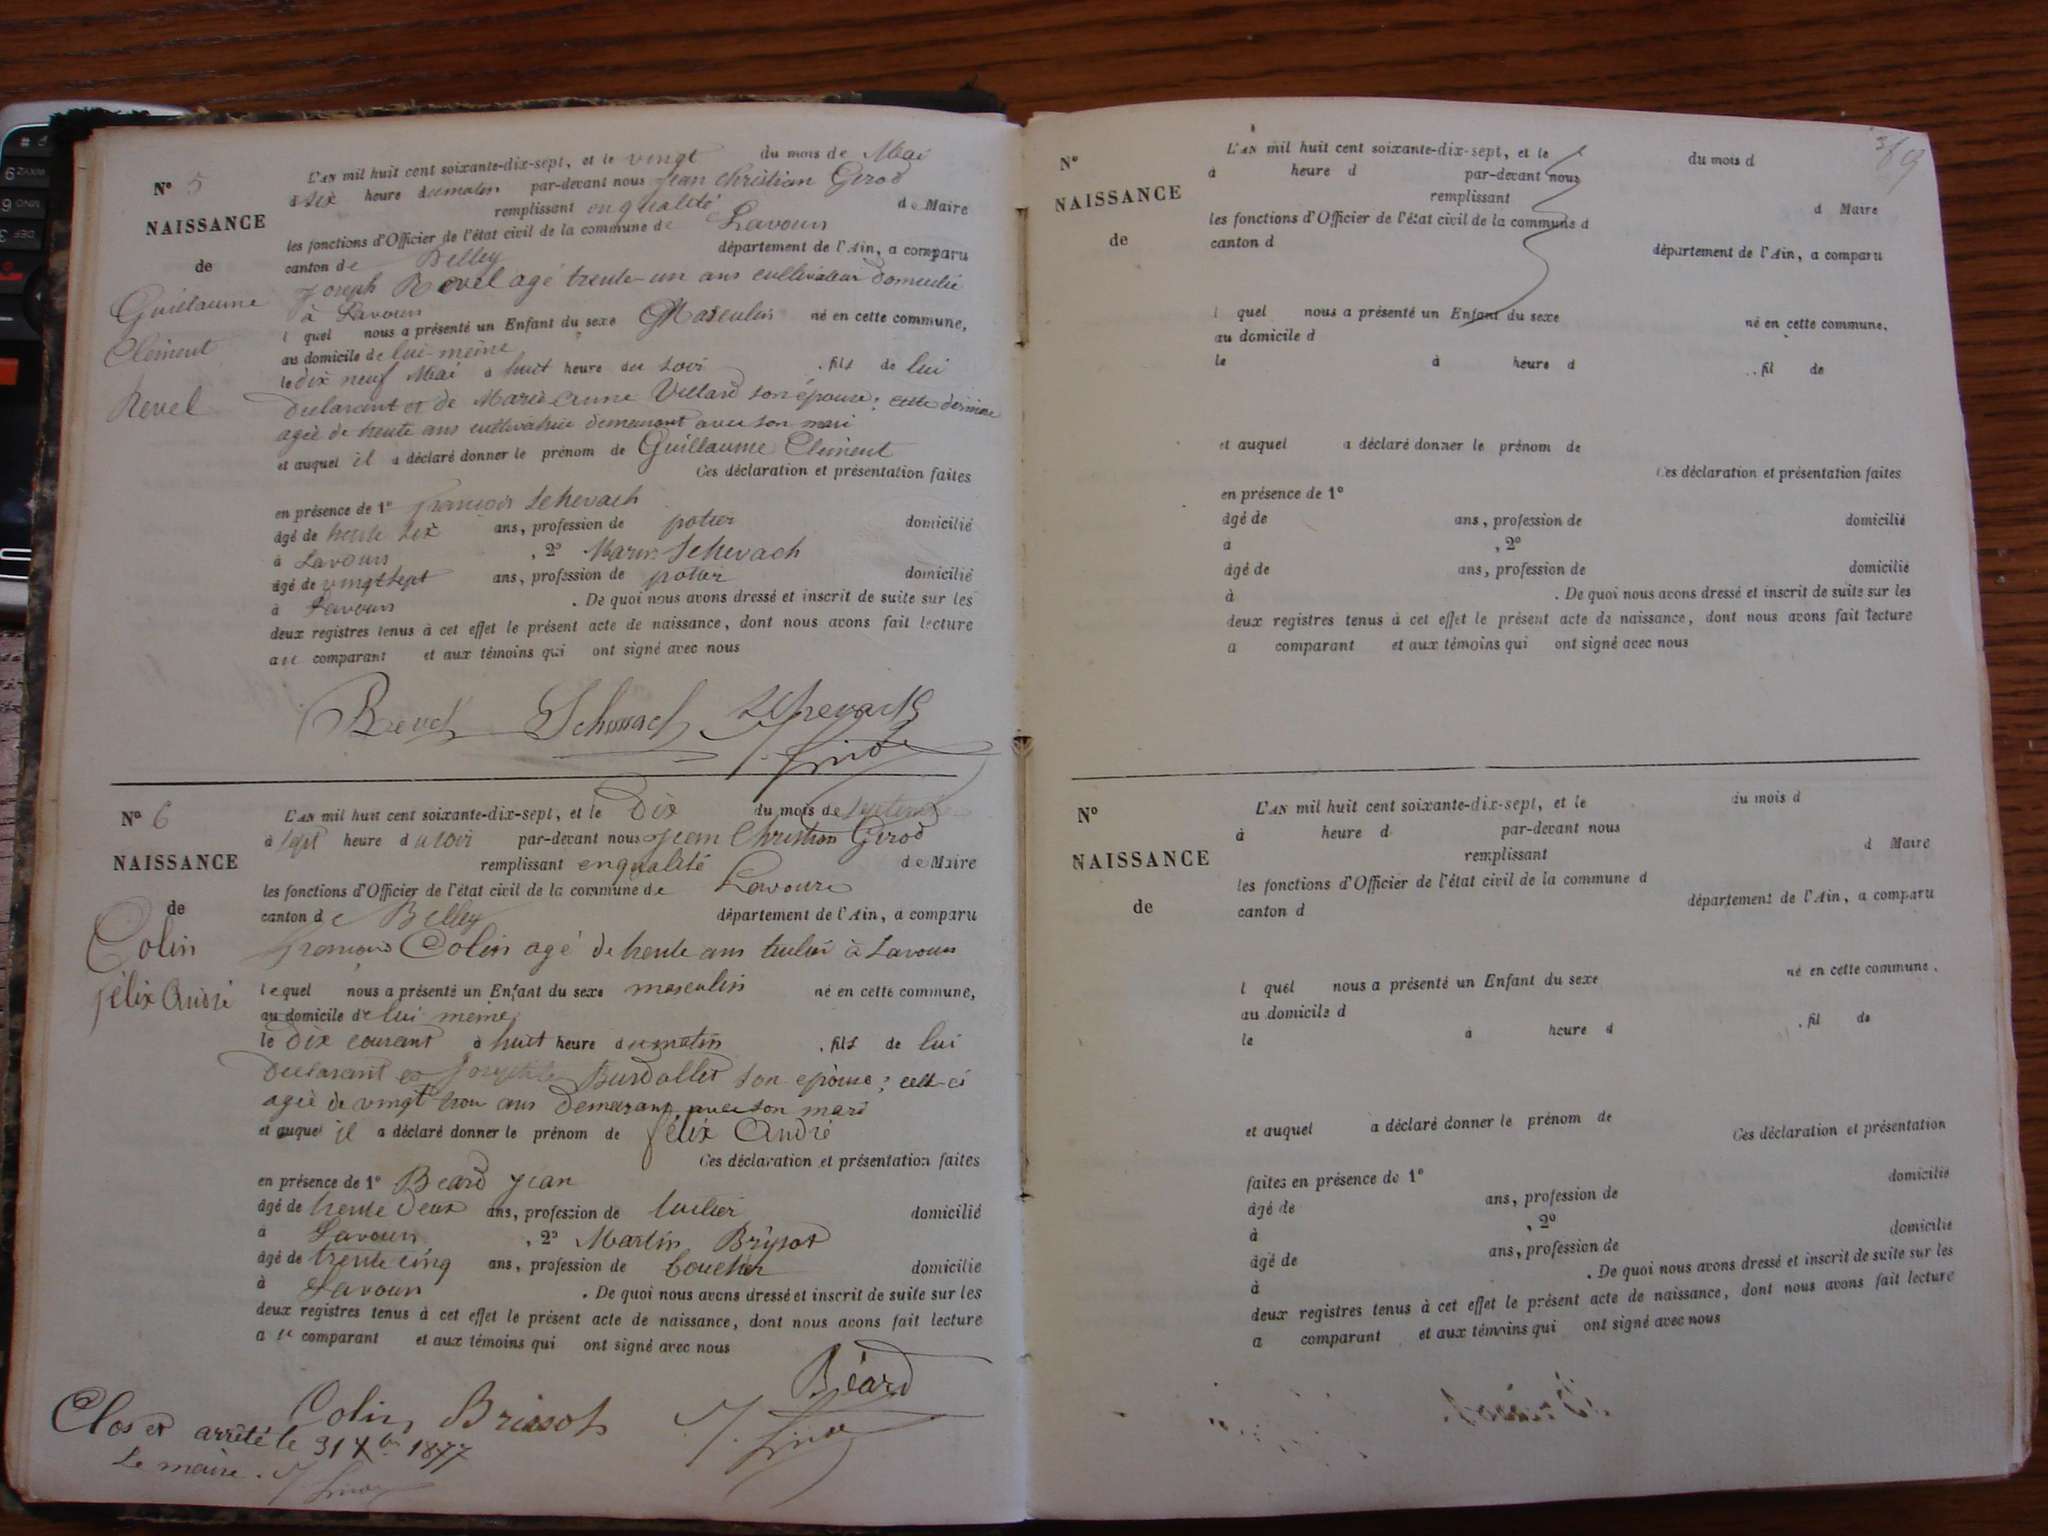 N° 5
NAISSANCE
de
Guillaume
Clément
Revel
L'AN mil huit cent soixante-dix-sept, et le vingt du mois de Mai
à six heure du matin par-devant nous Jean Christian Girod
remplissant en qualité de Maire
les fonctions d'Officier de l'état civil de la commune de Lavours
canton de Belley département de l'Ain, a comparu
Joseph Revel agé trente-un ans cultivateur domicilié
à Lavours
l quel nous a présenté un Enfant du sexe Masculin né en cette commune,
au domicile de lui-même
le dix neuf Mai à huit heure du soir . fils de lui
Declarant et de Marie Anne Villard son épouse; cette dernière
agée de trente ans cultivatrice demeurant avec son mari
et auquel il a déclaré donner le prénom de Guillaume Clément
Ces déclaration et présentation faites
en présence de 1° François Schevach
âgé de trente six ans, profession de potier domicilié
à Lavours , 2° Schevach
âgé de vingt sept ans, profession de potier domicilié
à Lavours . De quoi nous avons dressé et inscrit de suite sur les
deux registres tenus à cet effet le présent acte de naissance, dont nous avons fait lecture
au comparant et aux témoins qui ont signé avec nous
Revel Schevach Schevach
J. Girod
N° 6
NAISSANCE
de
Colin
félix André
L'AN mil huit cent soixante-dix-sept, et le Dix du mois de septembre
à sept heure du soir par-devant nous Jean Christian Girod
remplissant en qualité de Maire
les fonctions d'Officier de l'état civil de la commune de Lavours
canton de Belley département de l'Ain, a comparu
Colin agé de trente ans à Lavours
lequel nous a présenté un Enfant du sexe masculin né en cette commune,
au domicile de lui même
le Dix courant à huit heure du matin . fils de lui
Declarant et Josephte Burdallet son epouse; celle-ci
agée de vingt trois ans Demeurant avec son mari
et auquel il a déclaré donner le prénom de félix André
Ces déclaration et présentation faites
en présence de 1° Beard Jean
âgé de trente deux ans, profession de tuilier domicilié
à Lavours , 2° Martin Brissot
âgé de trente cinq ans, profession de boucher domicilié
à Lavours . De quoi nous avons dressé et inscrit de suite sur les
deux registres tenus à cet effet le présent acte de naissance, dont nous avons fait lecture
au comparant et aux témoins qui ont signé avec nous
Béard
Colin Brissot J. Girod
Clos et arrêté le 31 Xbre 1877
Le maire. J. Girod
N°
NAISSANCE
de
L'AN mil huit cent soixante-dix-sept, et le du mois d
à heure d par-devant nous
remplissant d Maire
les fonctions d'Officier de l'état civil de la commune d
canton d département de l'Ain, a comparu
l quel nous a présenté un Enfant du sexe né en cette commune,
au domicile d
le à heure d . fil de
et auquel a déclaré donner le prénom de
Ces déclaration et présentation faites
en présence de 1°
âgé de ans, profession de domicilié
à , 2°
âgé de ans, profession de domicilié
à . De quoi nous avons dressé et inscrit de suite sur les
deux registres tenus à cet effet le présent acte de naissance, dont nous avons fait lecture
a comparant et aux témoins qui ont signé avec nous
N°
NAISSANCE
de
L'AN mil huit cent soixante-dix-sept, et le du mois d
à heure d par-devant nous
remplissant d Maire
les fonctions d'Officier de l'état civil de la commune d
canton d département de l'Ain, a comparu
l quel nous a présenté un Enfant du sexe né en cette commune,
au domicile d
le à heure d . fil de
et auquel a déclaré donner le prénom de
Ces déclaration et présentation
faites en présence de 1° domicilié
âgé de ans, profession de
à , 2° domicilié
âgé de ans, profession de
à . De quoi nous avons dressé et inscrit de suite sur les
deux registres tenus à cet effet le présent acte de naissance, dont nous avons fait lecture
a comparant et aux témoins qui ont signé avec nous